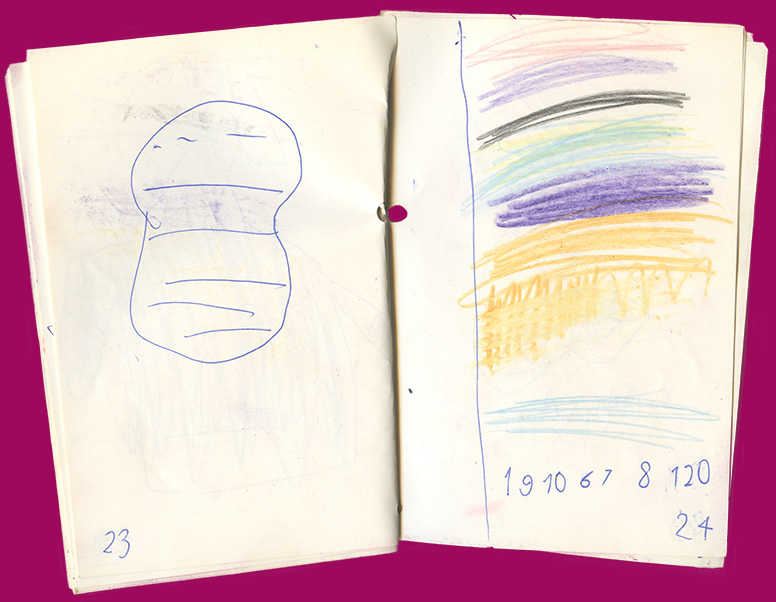 23
19 10 67 8 120
24